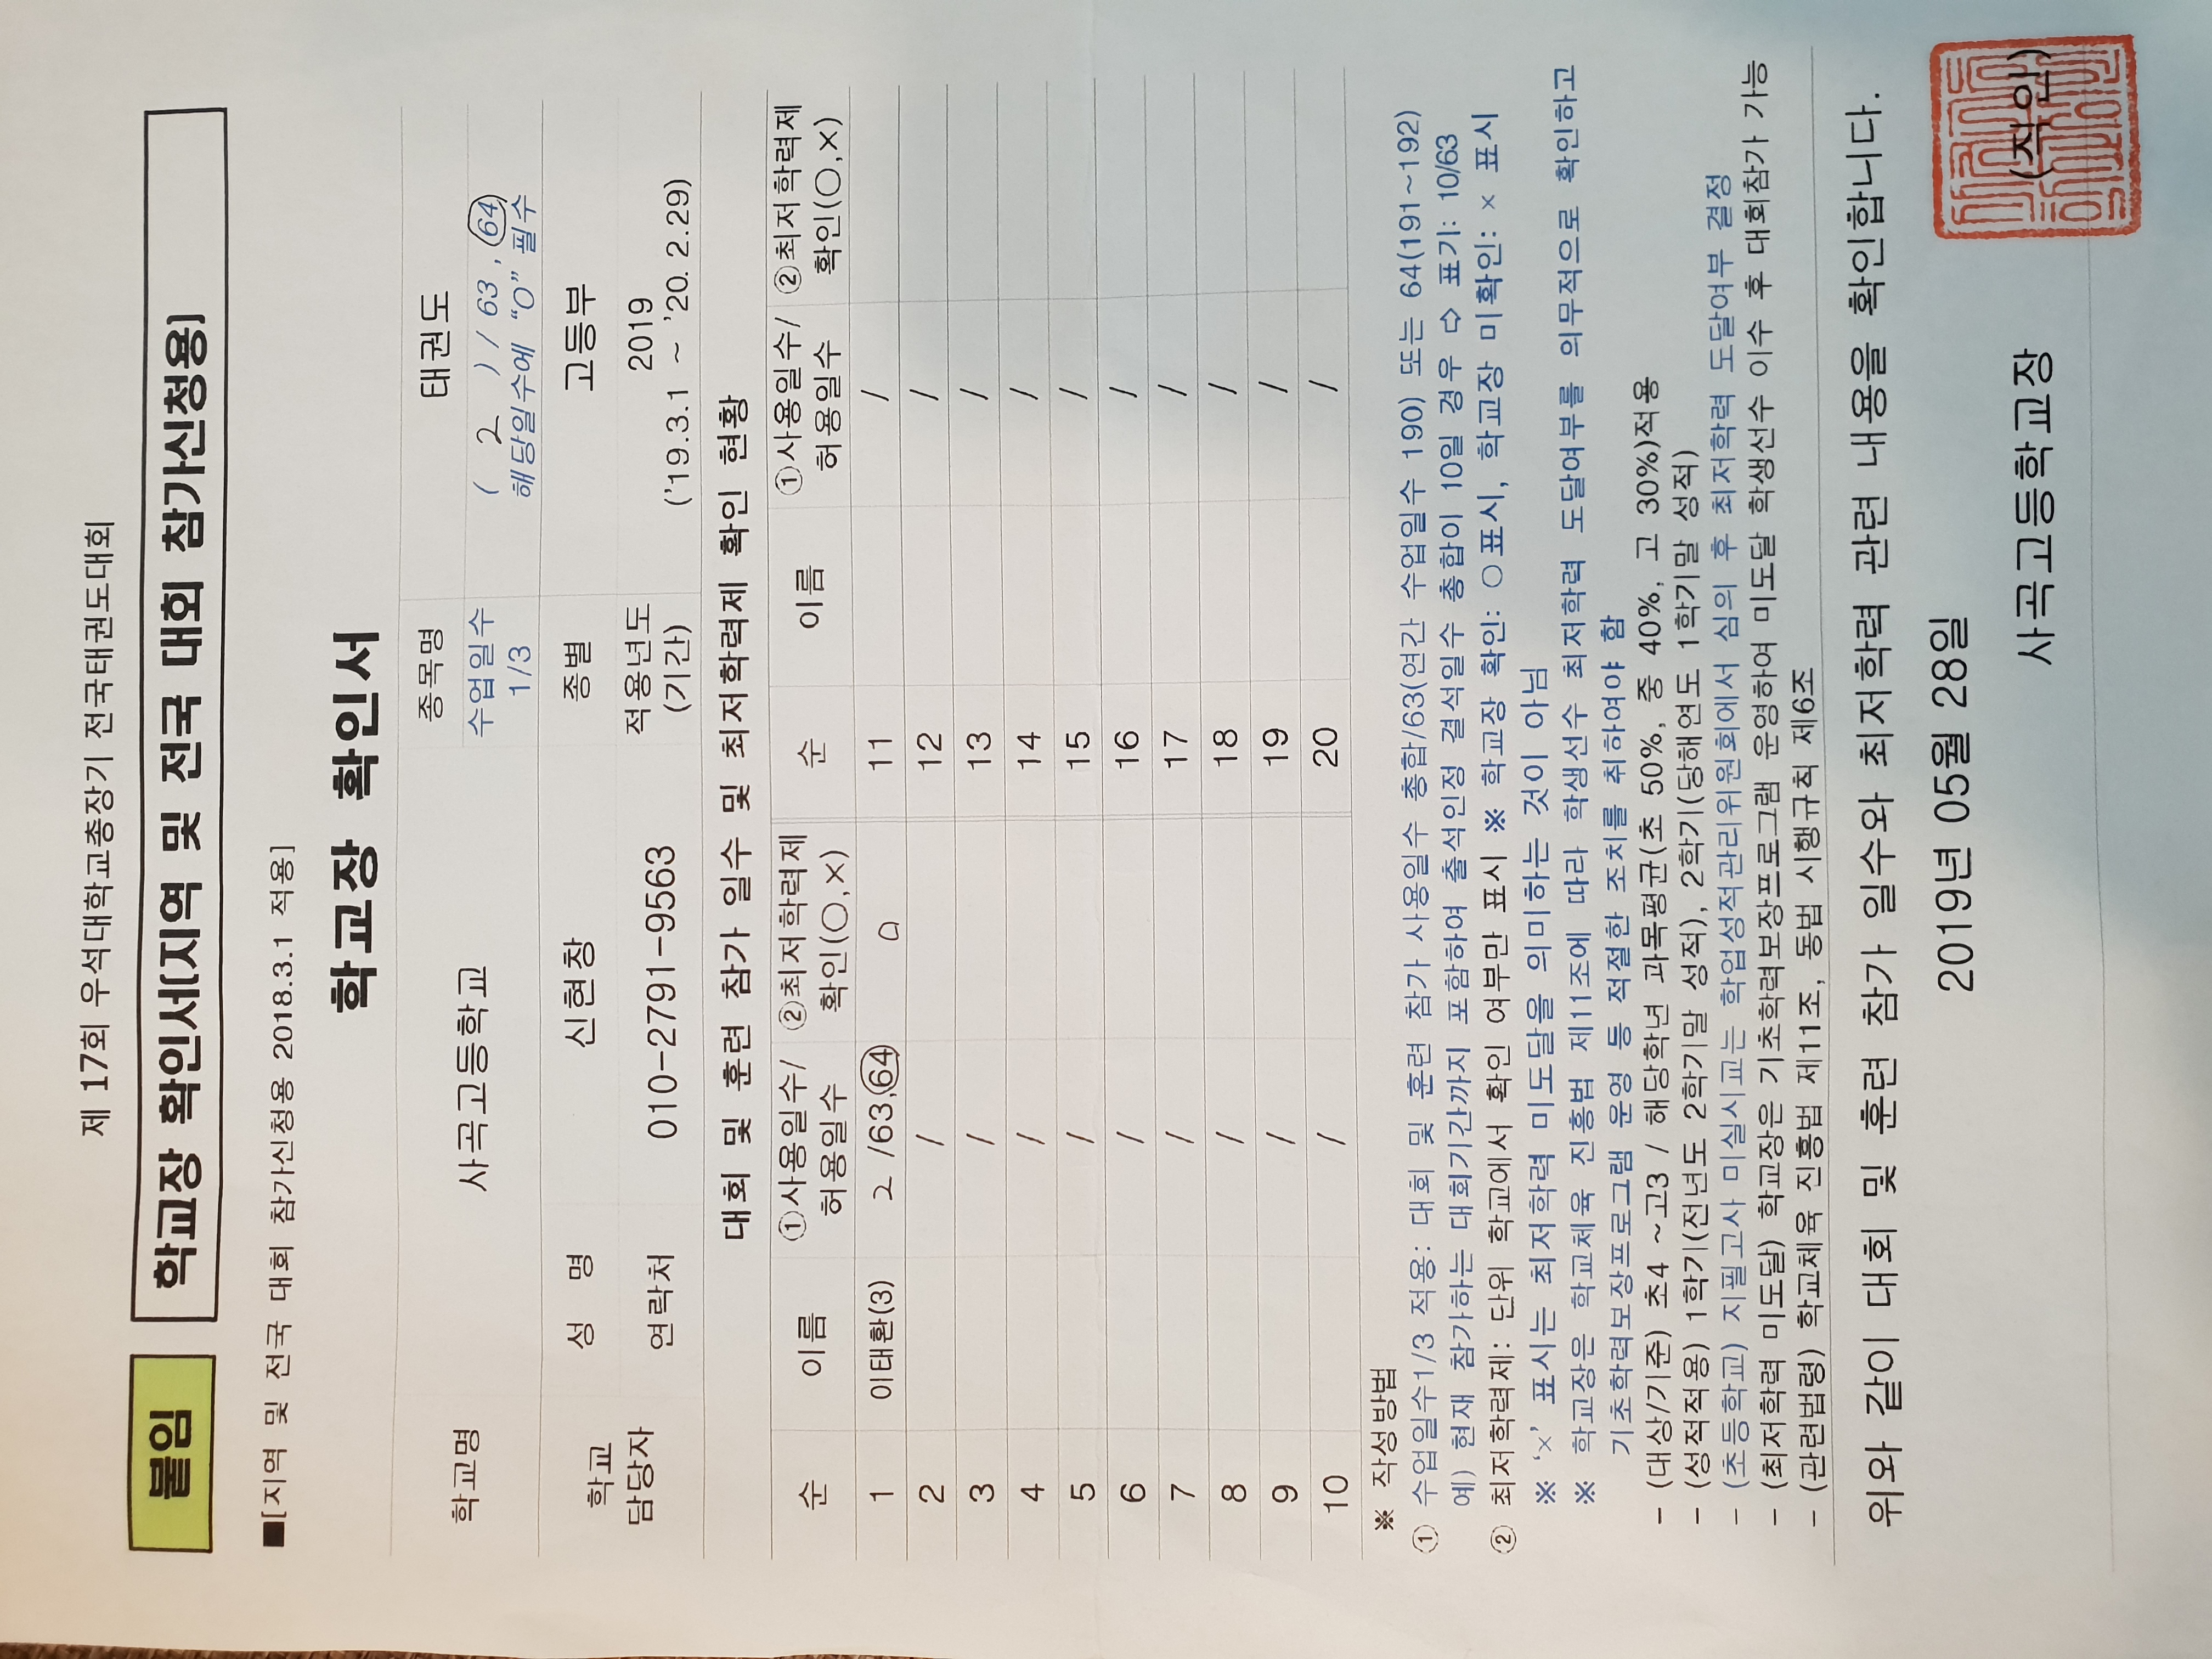 제 17회 우석대학교총장기 전국태권도대회
붙임 학교장 확인서(지역 및 전국 대회 참가신청용)
■[지역 및 전국 대회 참가신청용 2018.3.1 적용]
학교장 확인서
학교명 사곡고등학교 종목명 태권도
수업일수 1/3 ( 2 ) / 63 , 64
해당일수에 "O" 필수
학교 담당자 성 명 신현창 종별 고등부
연락처 010-2791-9563 적용년도 (기간) 2019
('19.3.1 ~ '20. 2.29)
대회 및 훈련 참가 일수 및 최저학력제 확인 현황
순 이름 ①사용일수/허용일수 ②최저학력제 확인(○,×) 순 이름 ①사용일수/허용일수 ②최저학력제 확인(○,×)
1 이태환(3) 2 /63,64 ○ 11 /
2 / 12 /
3 / 13 /
4 / 14 /
5 / 15 /
6 / 16 /
7 / 17 /
8 / 18 /
9 / 19 /
10 / 20 /
※ 작성방법
① 수업일수1/3 적용: 대회 및 훈련 참가 사용일수 총합/63(연간 수업일수 190) 또는 64(191~192)
예) 현재 참가하는 대회기간까지 포함하여 출석인정 결석일수 총합이 10일 경우 ⇨ 표기: 10/63
② 최저학력제: 단위 학교에서 확인 여부만 표시 ※ 학교장 확인: ○표시, 학교장 미확인: × 표시
※ '×' 표시는 최저학력 미도달을 의미하는 것이 아님
※ 학교장은 학교체육 진흥법 제11조에 따라 학생선수 최저학력 도달여부를 의무적으로 확인하고
기초학력보장프로그램 운영 등 적절한 조치를 취하여야 함
- (대상/기준) 초4 ~고3 / 해당학년 과목평균(초 50%, 중 40%, 고 30%)적용
- (성적적용) 1학기(전년도 2학기말 성적), 2학기(당해연도 1학기말 성적)
- (초등학교) 지필고사 미실시교는 학업성적관리위원회에서 심의 후 최저학력 도달여부 결정
- (최저학력 미도달) 학교장은 기초학력보장프로그램 운영하여 미도달 학생선수 이수 후 대회참가 가능
- (관련법령) 학교체육 진흥법 제11조, 동법 시행규칙 제6조
위와 같이 대회 및 훈련 참가 일수와 최저학력 관련 내용을 확인합니다.
2019년 05월 28일
사곡고등학교장 (직인)